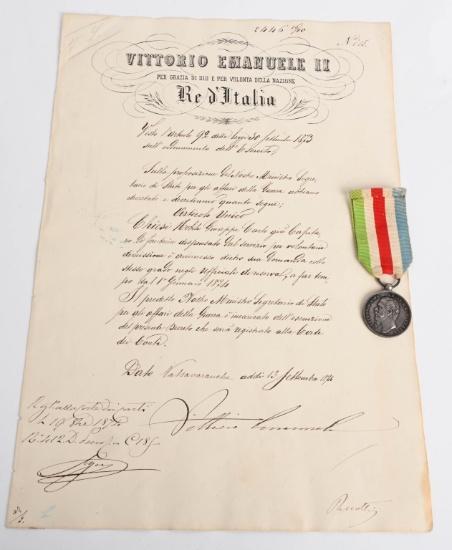 VITTORIO EMANUELE II
PER GRAZIA DI DIO E PER VOLONTÀ DELLA NAZIONE
Re d'Italia
Visto l'articolo 9° della legge 30 settembre 1873
sull'ordinamento dell'Esercito;
Sulla proposizione del Nostro Ministro Segre
tario di Stato per gli affari della Guerra abbiamo
decretato e decretiamo quanto segue:
Articolo Unico
Chiesa Giuseppe Carlo già Capita
no di fanteria dispensato dal servizio per volontaria
demissione è ammesso dietro sua domanda collo
stesso grado negli uffiziali di riserva, a far tem
po dal 1° Gennaio 1874
Il predetto Nostro Ministro Segretario di Stato
per gli affari della Guerra è incaricato dell'esecuzione
del presente Decreto che sarà registrato alla Corte
dei Conti.
Dato Valsavaranche addì 13 Settembre 1874
Vittorio Emanuele
Ricotti